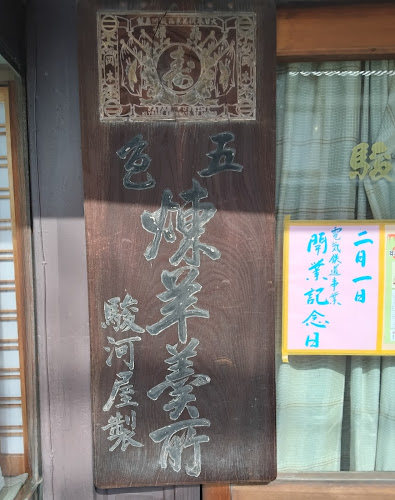 壽
五色
煉羊羹所
駿河屋製
駿
二月一日
電気鉄道事業
開業記念日